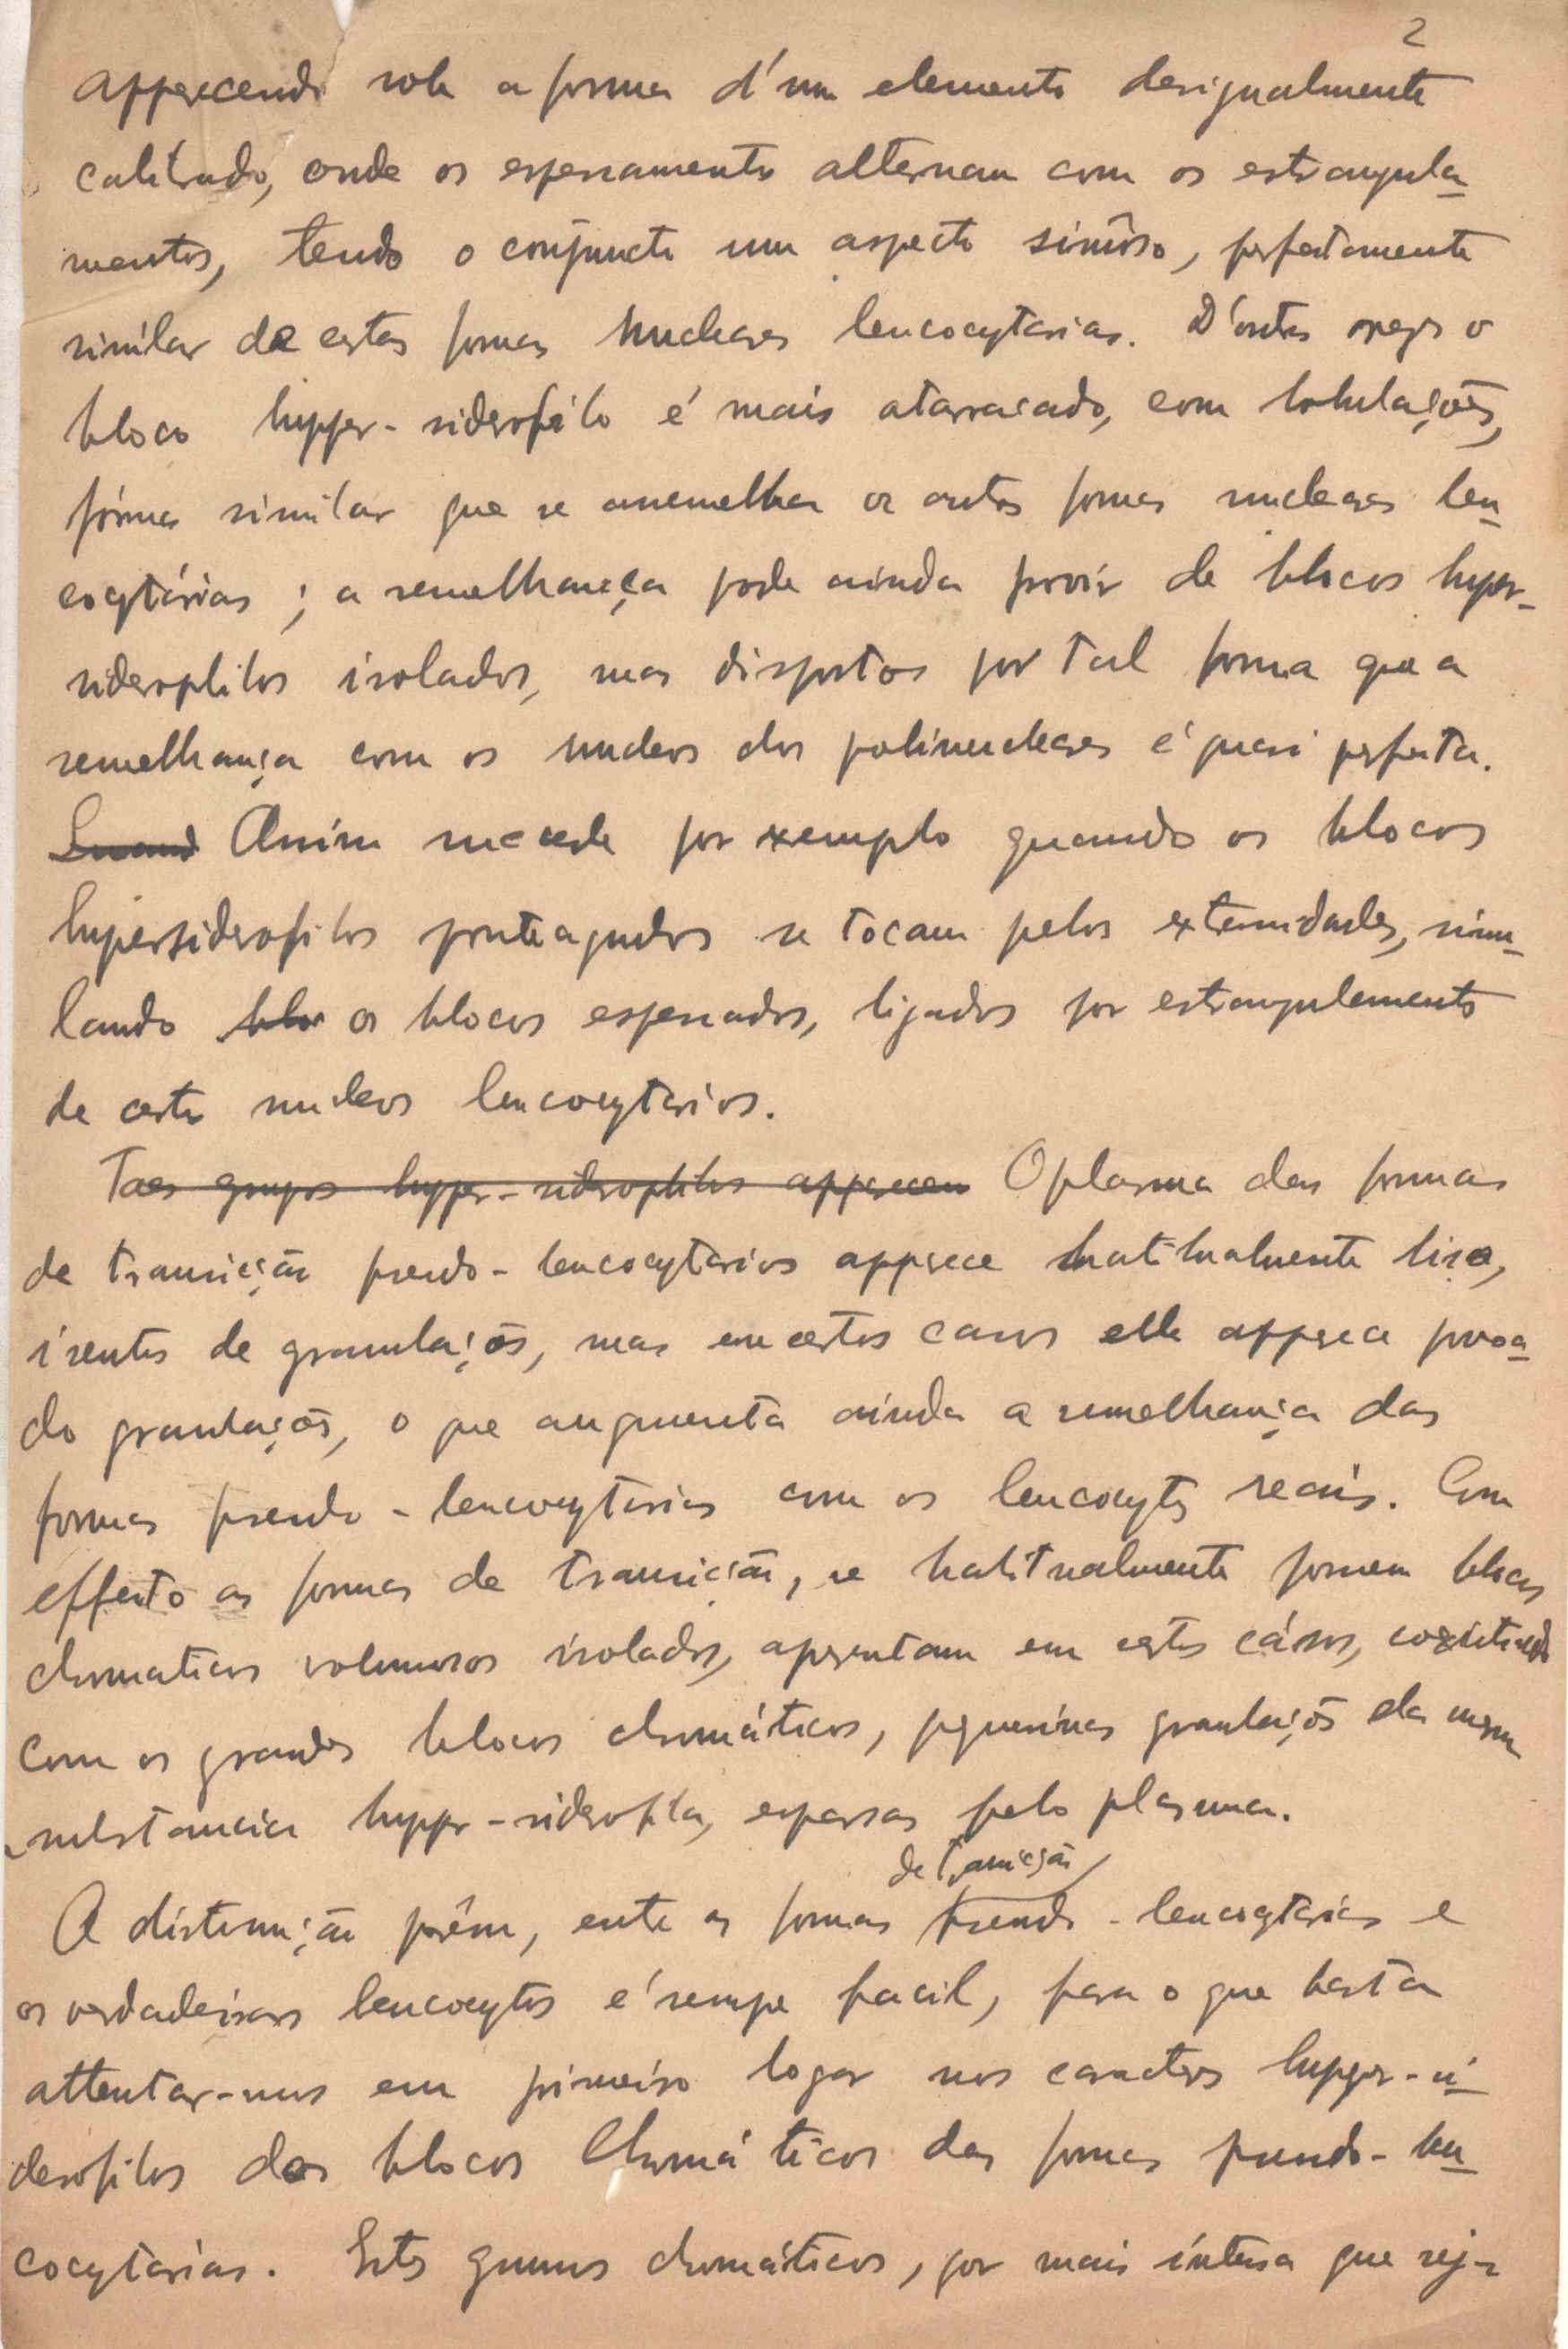 2
apparecendo sob a forma d'um elemento desigualmente
calibrado, onde os espessamentos alternam com os estrangula-
mentos, tendo o conjuncto um aspecto sinuoso, perfeitamente
similar de certas formas nucleares leucocytarias. D'outras vezes o
bloco hyper-siderofilo é mais atarracado, com lobulações,
fórma similar que se assemelha a outras formas nucleares leu-
cocytárias ; a semelhança pode ainda provir de blocos hyper-
siderophilos isolados, mas dispostos por tal forma que a
semelhança com os nucleos dos polinucleares é quasi perfeita.
Assim succede por exemplo quando os blocos
hypersiderofilos ponteagudos se tocam pelas extremidades, simu-
lando os blocos espessados, ligados por estrangulamentos
de certos nucleos leucocytarios.
Taes grupos hyper-siderophilos apparecem O plasma das formas
de transicção pseudo-leucocytarias apparece habitualmente liso,
isento de granulações, mas em certos casos elle apparece povoa-
do granulações, o que augmenta ainda a semelhança das
formas pseudo-leucocytarias com os leucocytos reais. Com
effeito as formas de transicção, se habitualmente possuem blocos
chromaticos volumosos isolados, apresentam em certos cásos, coexistindo
com os grandes blocos chromáticos, pequeninas granulações da mesma
substancia hyper-siderofila, esparsas pelo plasma.
de transicção
A distincção porêm, entre as formas pseudo-leucocytarias e
os verdadeiros leucocytos é sempre facil, para o que basta
attentar-mos em primeiro logar nos caracteres hyper-si-
derofilos dos blocos Chromáticos das formas pseudo-leu-
cocytarias. Estes grumos chromáticos, por mais intensa que seja